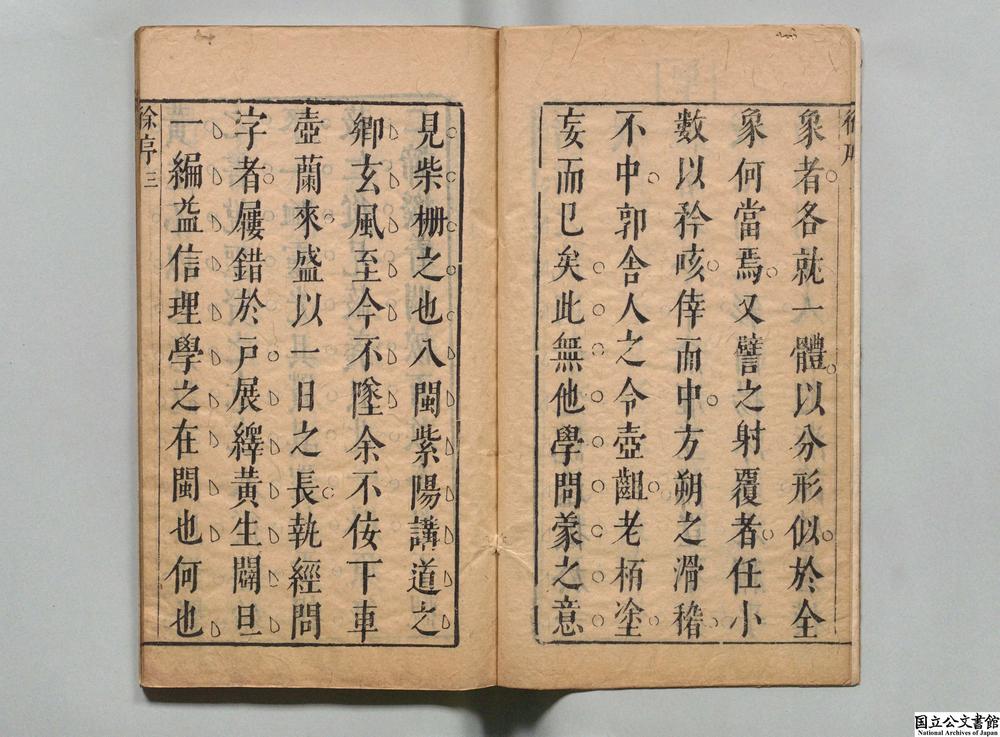 象者各就一體以分形似於全
象何當焉又譬之射覆者任小
數以矜咳倖而中方朔之滑稽
不中郭舍人之令壺齟老栢塗
妄而已矣此無他學問蒙之意
見柴柵之也入閩紫陽講道之
鄉玄風至今不墜余不佞下車
壺蘭來盛以一日之長執經問
字者屨錯於戸展繹黄生闢旦
一編益信理學之在閩也何也
徐序 三
国立公文書館
National Archives of Japan